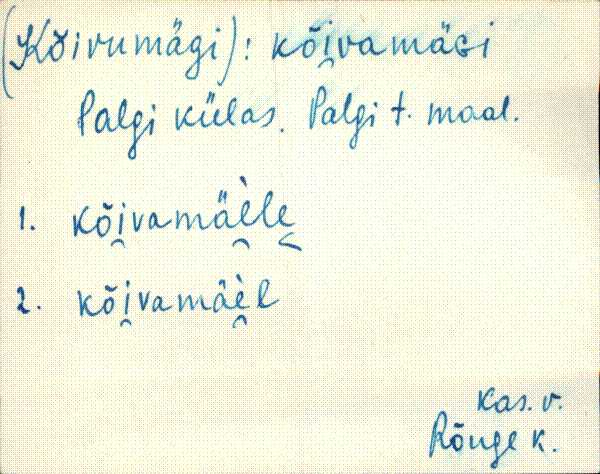 (Kõivumägi): kõi̯vamäɢi
Palgi külas. Palgi t. maal.
1. kõi̯vamäè̯le̬
2. kõi̯vamäè̯l
Kas. v.
Rõuge k.